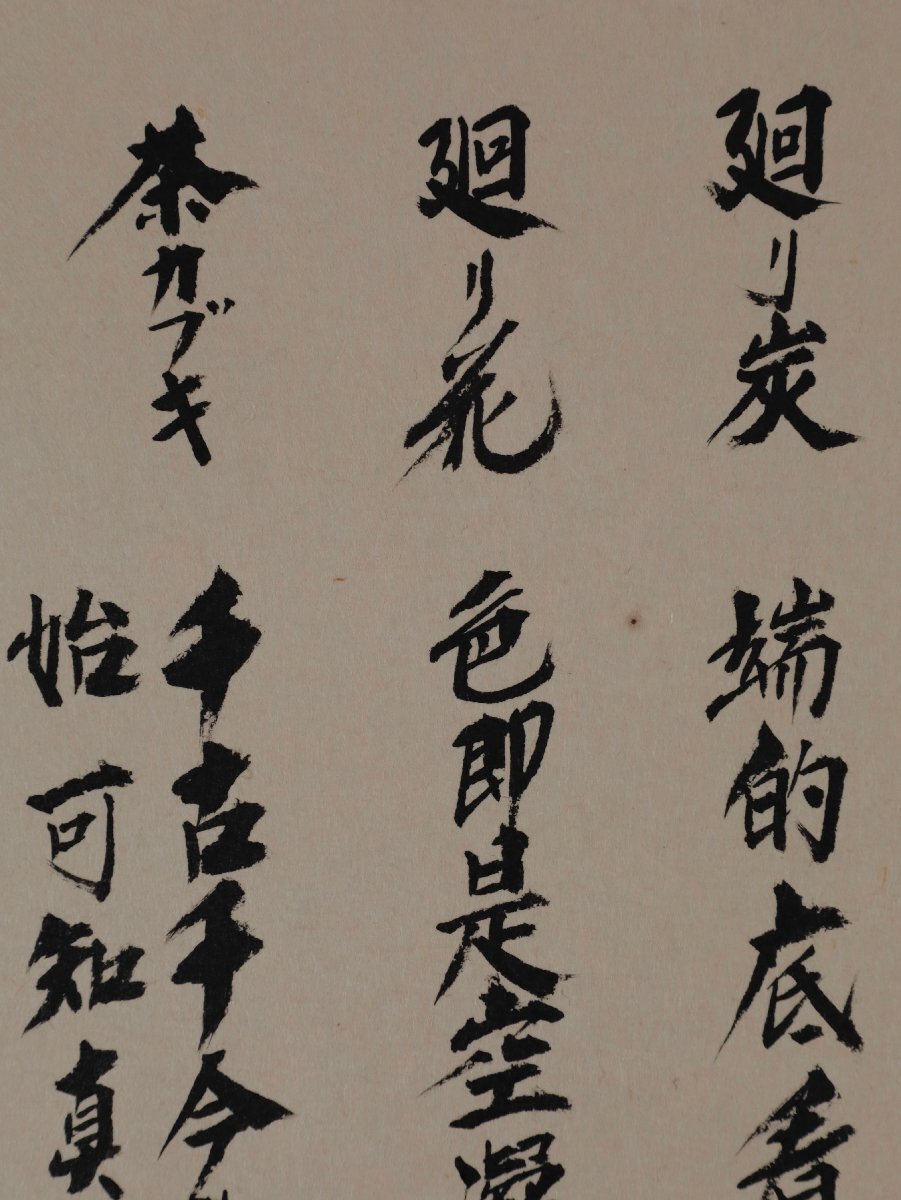 廻リ炭
端的底看
廻リ花
色即是空凝
茶カブキ
千古千今
始可知真